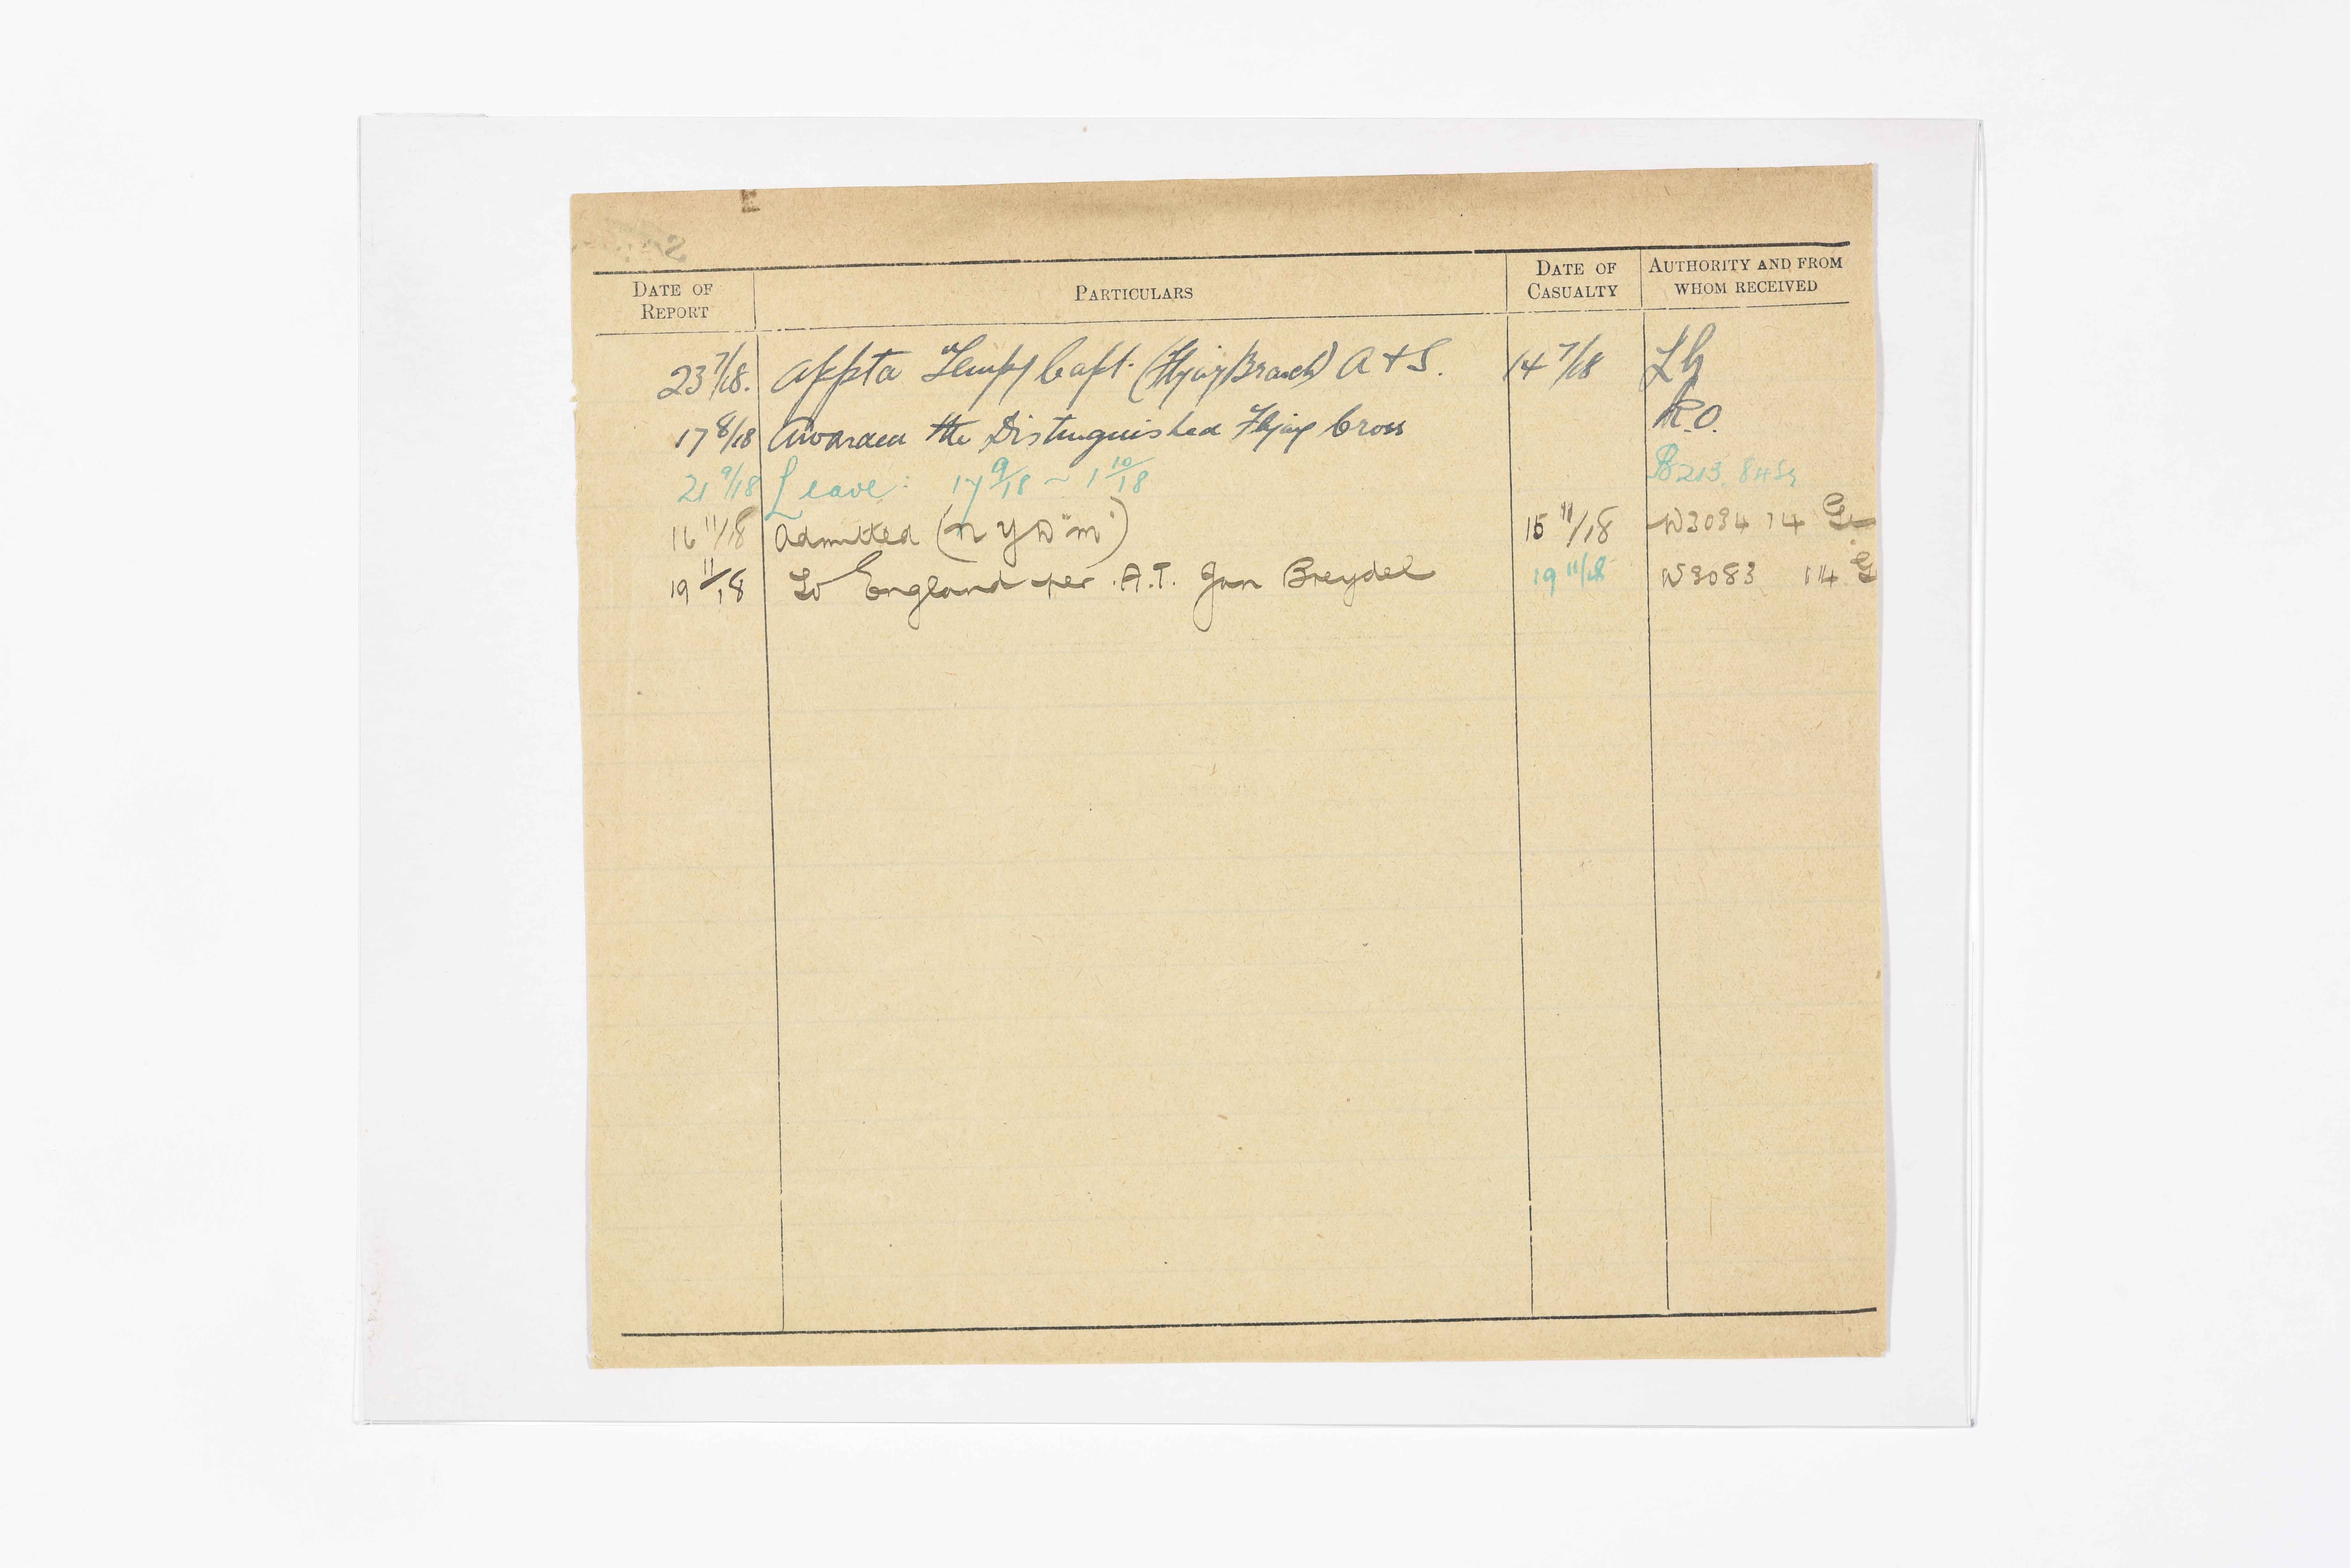 DATE OF REPORT PARTICULARS DATE OF CASUALTY AUTHORITY AND FROM WHOM RECEIVED
23 7/18. Appta Tempy Capt. (Flying Branch) A + S. 14 7/18 LG
17 8/18 Awarded the Distinguished Flying Cross R.O.
21 9/18 Leave: 17 9/18 ~ 1 10/18 B213. 84 Sq
16 11/18 Admitted (N Y D "m") 15 11/18 W3034 14 G
19 11/18 To England per A.T. Jan Breydel 19 11/18 W3083 14 G